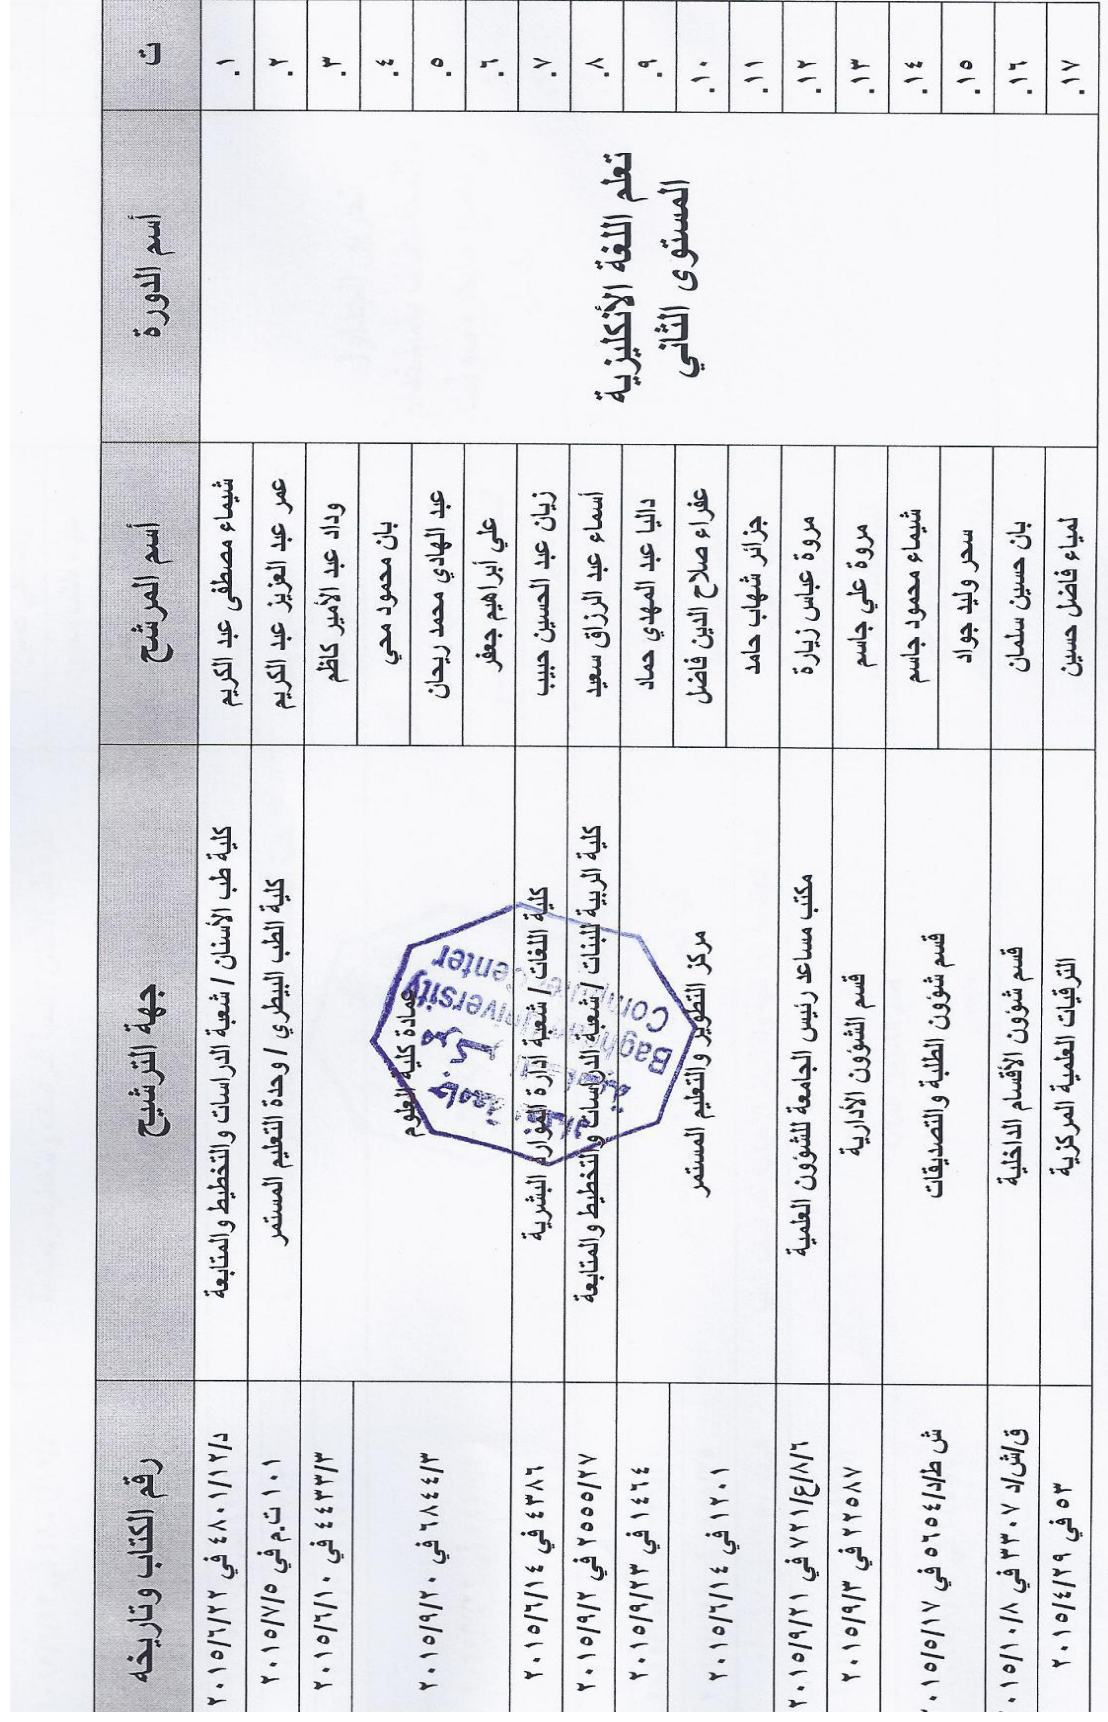 ت أسم الدورة أسم المرشح جهة الترشيح رقم الكتاب وتاريخه
تعلم اللغة الأنكليزية
المستوى الثاني
١. شيماء مصطفى عبد الكريم كلية طب الأسنان / شعبة الدراسات والتخطيط والمتابعة د/٤٨٠١/١٢ في ٢٠١٥/٦/٢٢
٢. عمر عبد العزيز عبد الكريم كلية الطب البيطري / وحدة التعليم المستمر ١٠١ ت.م في ٢٠١٥/٧/٥
٣. وداد عبد الأمير كاظم عمادة كلية العلوم ٤٤٣٣/٣ في ٢٠١٥/٦/١٠
٤. بان محمود محي
٥. عبد الهادي محمد ريحان ٦٨٤٤/٣ في ٢٠١٥/٩/٢٠
٦. علي أبراهيم جعفر
٧. زيان عبد الحسين حبيب كلية اللغات / شعبة أدارة الموارد البشرية ٤٣٨٦ في ٢٠١٥/٦/١٤
٨. أسماء عبد الرزاق سعيد كلية الربية للبنات / شعبة الدراسات والتخطيط والمتابعة ٢٥٥٥/٢٧ في ٢٠١٥/٩/٢
٩. داليا عبد المهدي حماد مركز التطوير والتعليم المستمر ١٤٦٤ في ٢٠١٥/٩/٢٣
١٠. عفراء صلاح الدين فاضل ١٢٠١ في ٢٠١٥/٦/١٤
١١. جزائر شهاب حامد
١٢. مروة عباس زيارة مكتب مساعد رئيس الجامعة للشؤون العلمية ٧٢١/ع/٨/٦ في ٢٠١٥/٩/٢١
١٣. مروة علي جاسم قسم الشؤون الأدارية ٢٢٥٨٧ في ٢٠١٥/٩/٣
١٤. شيماء محمود جاسم قسم شؤون الطلبة والتصديقات ش ط/د/٥٦٥٤ في ٢٠١٥/٥/١٧
١٥. سحر وليد جواد
١٦. بان حسين سلمان قسم شؤون الأقسام الداخلية ق/ش/د ٣٣٠٧ في ٢٠١٥/١٠/٨
١٧. لمياء فاضل حسين الترقيات العلمية المركزية ٥٣ في ٢٠١٥/٤/٢٩
جامعة بغداد
مركز
Baghdad University
Computer Center